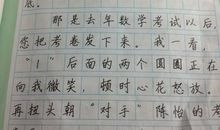 底。
那是去年数学考试以后,
您把考卷发下来。我一看,
"1"后面的两个圆圈正在
向我微笑,顿时心花怒放,
再扭头朝"对手"陈怡的考